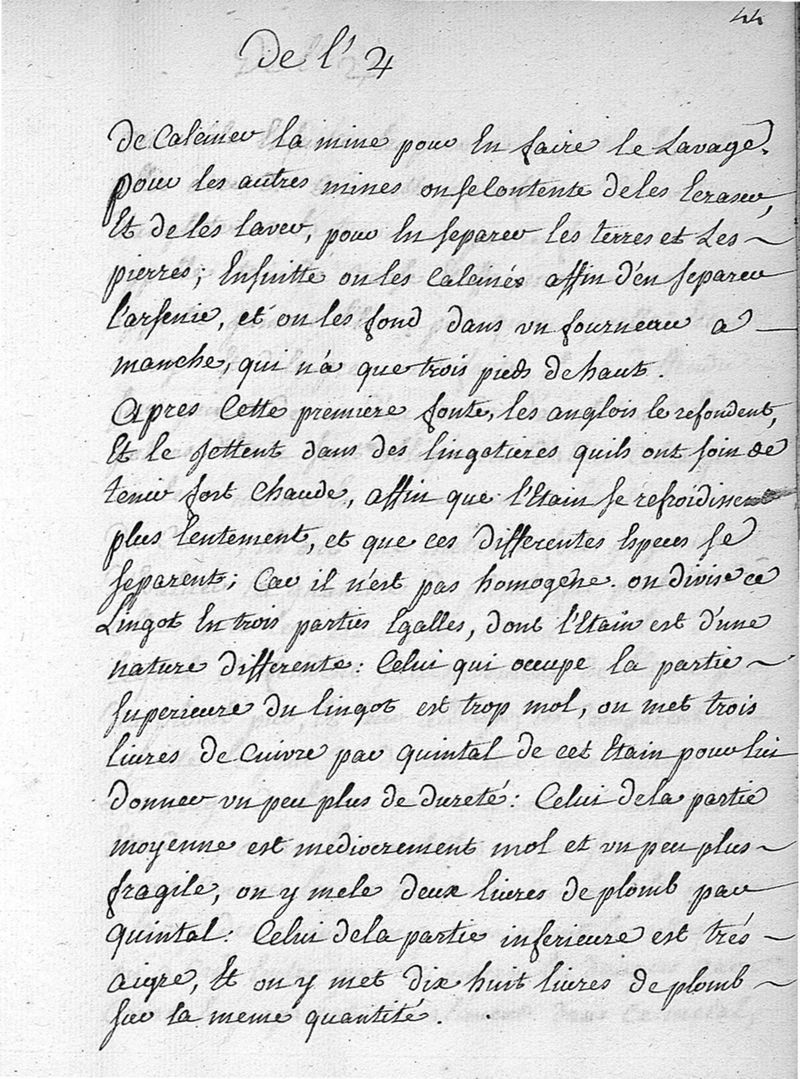 44
De l'♃
De Calciner la mine pour En faire le Lavage.
pour les autres mines on se Contente de les Ecraser,
Et de les laver, pour En separer les terres et Les ~
pierres; Ensuitte on les Calcinés affin d'en separer
l'arsenic, et on les fond dans un fourneau a —
manche, qui n'a que trois pieds de haut.
Apres Cette premiere fonte, les anglois le refondent,
Et le jettent dans des lingotieres quils ont soin de
tenir fort Chaude, affin que l'Etain se refroidissent
plus lentement, et que ces differentes Especes se
separent; Car il n'est pas homogene. on divise ce
Lingot En trois parties Egalles, dont l'Etain est d'une
nature differente: Celui qui occupe la partie ~
superieure du lingot est trop mol, on met trois
livres de Cuivre par quintal de cet Etain pour lui
donner un peu plus de dureté: Celui de la partie
moyenne est mediocrement mol et un peu plus ~
fragile, on y mele deux livres de plomb par
quintal: Celui de la partie inferieure est trés ~
aigre, Et on y met dix huit livres de plomb ~
sur la meme quantité.